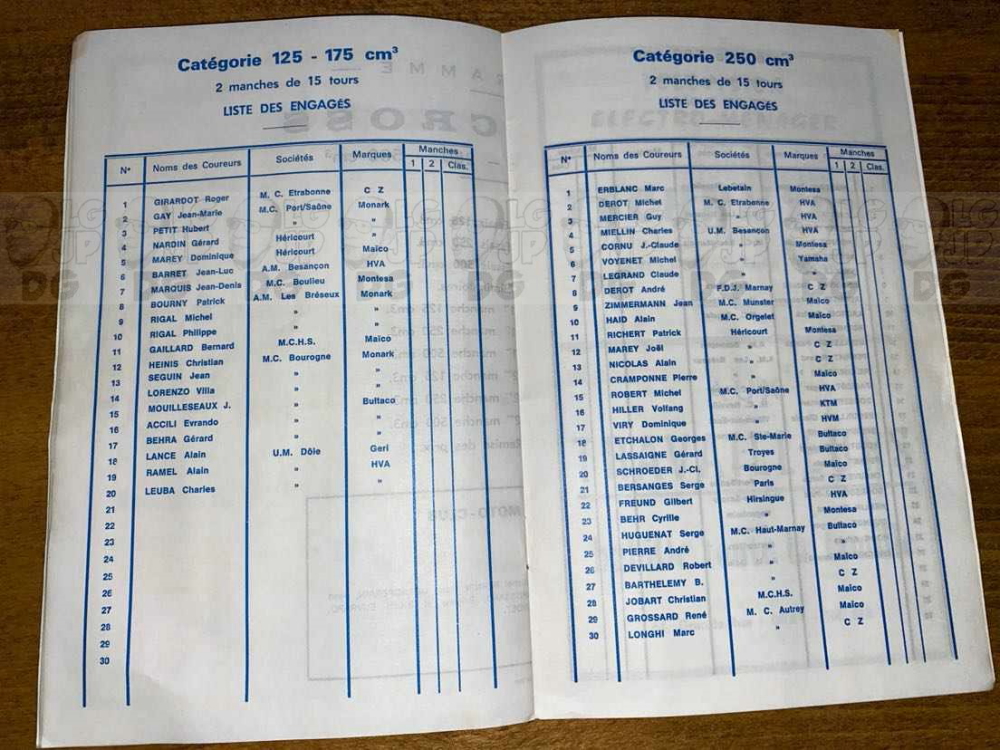 Catégorie 125 - 175 cm³
2 manches de 15 tours
LISTE DES ENGAGÉS
N° Noms des Coureurs Sociétés Marques Manches 1 2 Clas.
1 GIRARDOT Roger M. C. Etrabonne C Z
2 GAY Jean-Marie M.C. Port/Saône Monark
3 PETIT Hubert " "
4 NARDIN Gérard Héricourt "
5 MAREY Dominique Héricourt Maïco
6 BARRET Jean-Luc A.M. Besançon HVA
7 MARQUIS Jean-Denis M.C. Boulieu Montesa
8 BOURNY Patrick A.M. Les Bréseux Monark
9 RIGAL Michel " "
10 RIGAL Philippe " "
11 GAILLARD Bernard M.C.H.S. Maïco
12 HEINIS Christian M.C. Bourogne Monark
13 SEGUIN Jean " "
14 LORENZO Villa " "
15 MOUILLESEAUX J. " Bultaco
16 ACCILI Evrando " "
17 BEHRA Gérard " "
18 LANCE Alain U.M. Dôle Geri
19 RAMEL Alain " HVA
20 LEUBA Charles " "
21
22
23
24
25
26
27
28
29
30
Catégorie 250 cm³
2 manches de 15 tours
LISTE DES ENGAGÉS
N° Noms des Coureurs Sociétés Marques Manches 1 2 Clas.
1 ERBLANC Marc Lebetain Montesa
2 DEROT Michel M. C. Etrabonne HVA
3 MERCIER Guy " HVA
4 MIELLIN Charles U.M. Besançon HVA
5 CORNU J.-Claude " Montesa
6 VOYENET Michel " Yamaha
7 LEGRAND Claude " "
8 DEROT André F.D.J. Marnay C Z
9 ZIMMERMANN Jean M.C. Munster Maïco
10 HAID Alain M.C. Orgelet Maïco
11 RICHERT Patrick Héricourt Montesa
12 MAREY Joël " C Z
13 NICOLAS Alain " C Z
14 CRAMPONNE Pierre " Maïco
15 ROBERT Michel M.C. Port/Saône HVA
16 HILLER Vollang " KTM
17 VIRY Dominique " HVM
18 ETCHALON Georges M.C. Ste-Marie Bultaco
19 LASSAIGNE Gérard Troyes Bultaco
20 SCHROEDER J.-Cl. Bourogne Maïco
21 BERSANGES Serge Paris C Z
22 FREUND Gilbert Hirsingue HVA
23 BEHR Cyrille " Montesa
24 HUGUENAT Serge M.C. Haut-Marnay Bultaco
25 PIERRE André " "
26 DEVILLARD Robert " Maïco
27 BARTHELEMY B. " C Z
28 JOBART Christian M.C.H.S. Maïco
29 GROSSARD René M. C. Autrey Maïco
30 LONGHI Marc " C Z